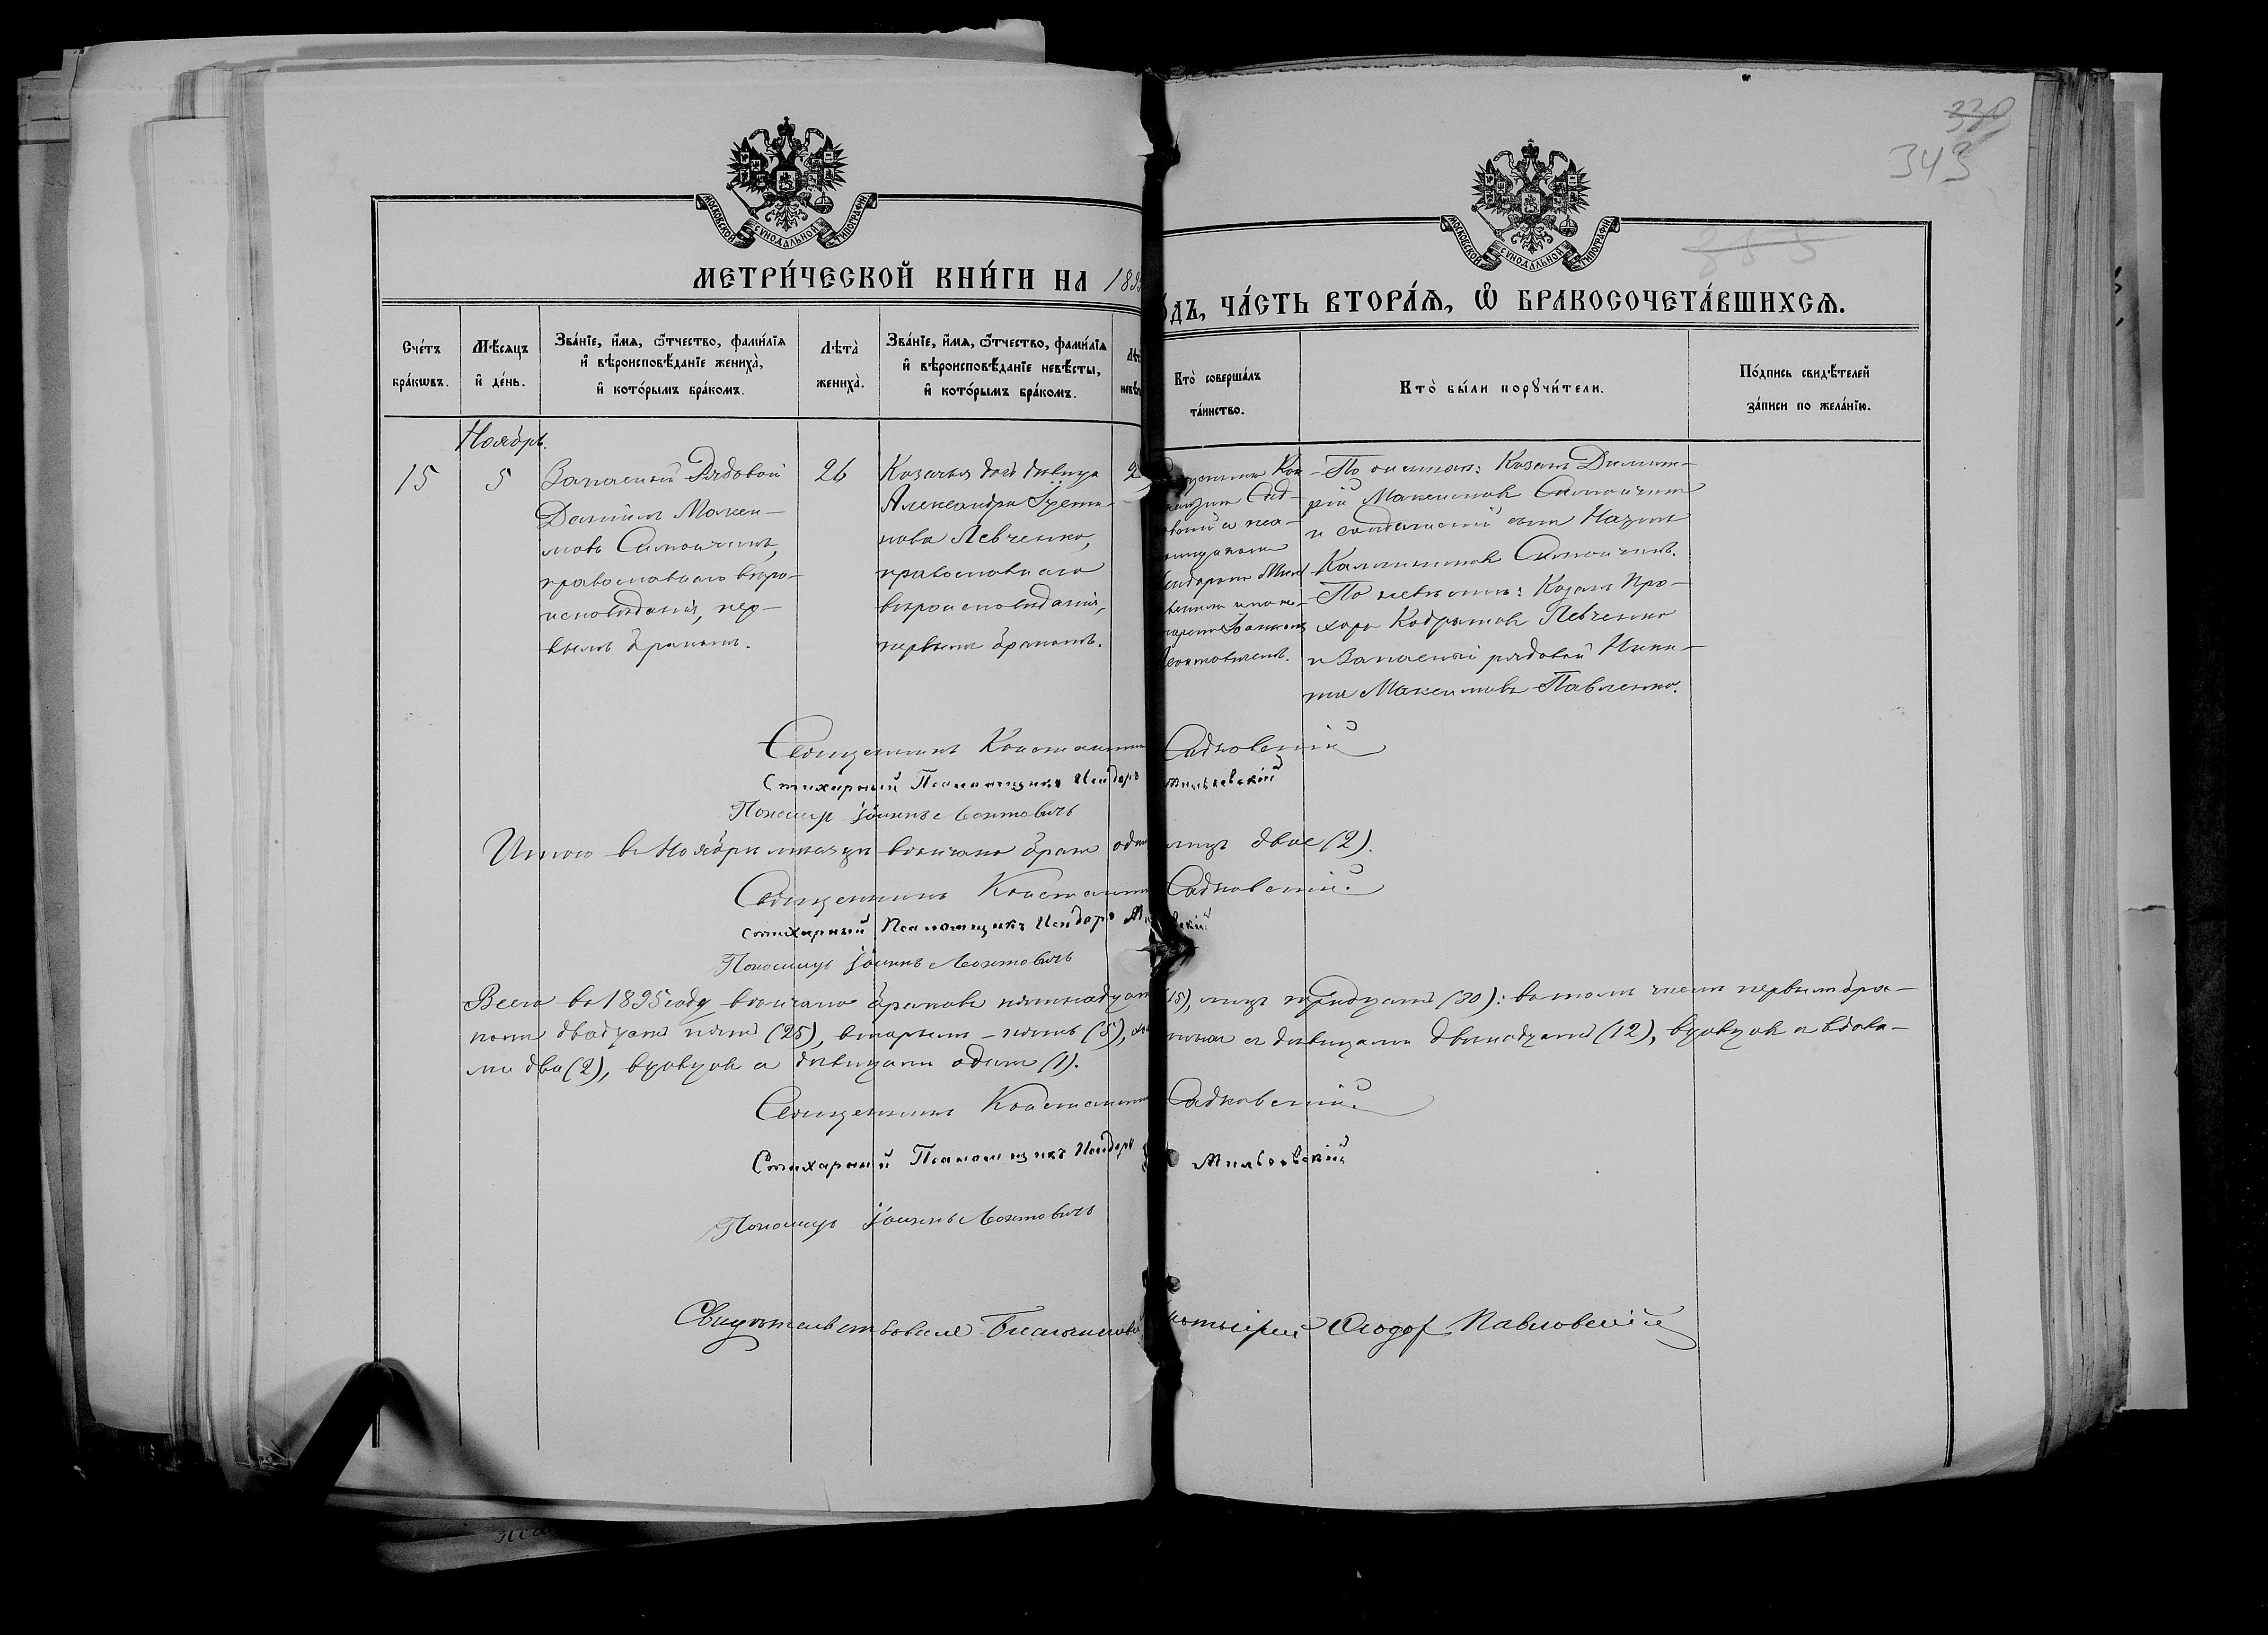 330
343
МОСКОВСКОЙ СѴНОДАЛЬНОЙ ТИПОГРАФІИ
МОСКОВСКОЙ СѴНОДАЛЬНОЙ ТИПОГРАФІИ
МЕТРИ́ЧЕСКОЙ КНИ́ГИ НА 1895
ДЪ, ЧА́СТЬ ВТОРА́Ѧ, Ѽ БРАКОСОЧЕТА́ВШИХСѦ.
Сче́тъ бра́кѡвъ.
Мѣ́сяцъ и҆ де́нь.
Зва́нїе, и҆́мѧ, ѻ҆́тчество, фамилїѧ и҆ вѣроисповѣ́данїе жениха̀, и҆ кото́рымъ бра́комъ.
Лѣта̀ жениха̀.
Зва́нїе, и҆́мѧ, ѻ҆́тчество, фамилїѧ и҆ вѣроисповѣ́данїе невѣ́сты, и҆ кото́рымъ бра́комъ.
Кто̀ соверша́лъ та́инство.
Кто̀ бы́ли порꙋчи́тели.
По́дпись свидѣ́телей за́писи по жела́нїю.
Ноябрь.
15
5
Запасный Рядовой
Даніилъ Макси-
мовъ Симончикъ,
православнаго вѣро-
исповѣданія, пер-
вымъ бракомъ.
26
Козачья дочь дѣвица
Александра
нова Левченко,
православнаго
вѣроисповѣданія,
первымъ бракомъ.
2
По женихѣ: Козакъ Димит-
рій Максимовъ Симончикъ
и солдатскій сынъ Назаръ
Каллиниковъ Симончикъ.
По невѣстѣ: Козакъ Про-
хоръ Кодратовъ Левченко
и Запасный рядовой Ники-
та Максимовъ Павленко.
Священникъ Константинъ Садковскій
Стихарный Псаломщикъ Исидоръ Мильковскій
Пономарь Іоаннъ Леонтовичъ
Итого въ Ноябрѣ мѣсяцѣ вѣнчано бракъ одинъ лицъ двое (2).
Священникъ Константинъ Садковскій.
Стихарный Псаломщикъ Исидоръ
Пономарь Іоаннъ Леонтовичъ
Всего въ 1895 году вѣнчано браковъ пятнадцать (15), лицъ тридцать (30): въ томъ числѣ первымъ бра-
комъ двадцать пять (25), вторымъ - пять (5), съ дѣвицами двѣнадцать (12), вдовцовъ съ вдова-
ми два (2), вдовцовъ съ дѣвицами одинъ (1).
Священникъ Константинъ Садковскій.
Стихарный Псаломщикъ Исидоръ Мильковскій
Пономарь Іоаннъ Леонтовичъ
Свидѣтельствовалъ Павловскій